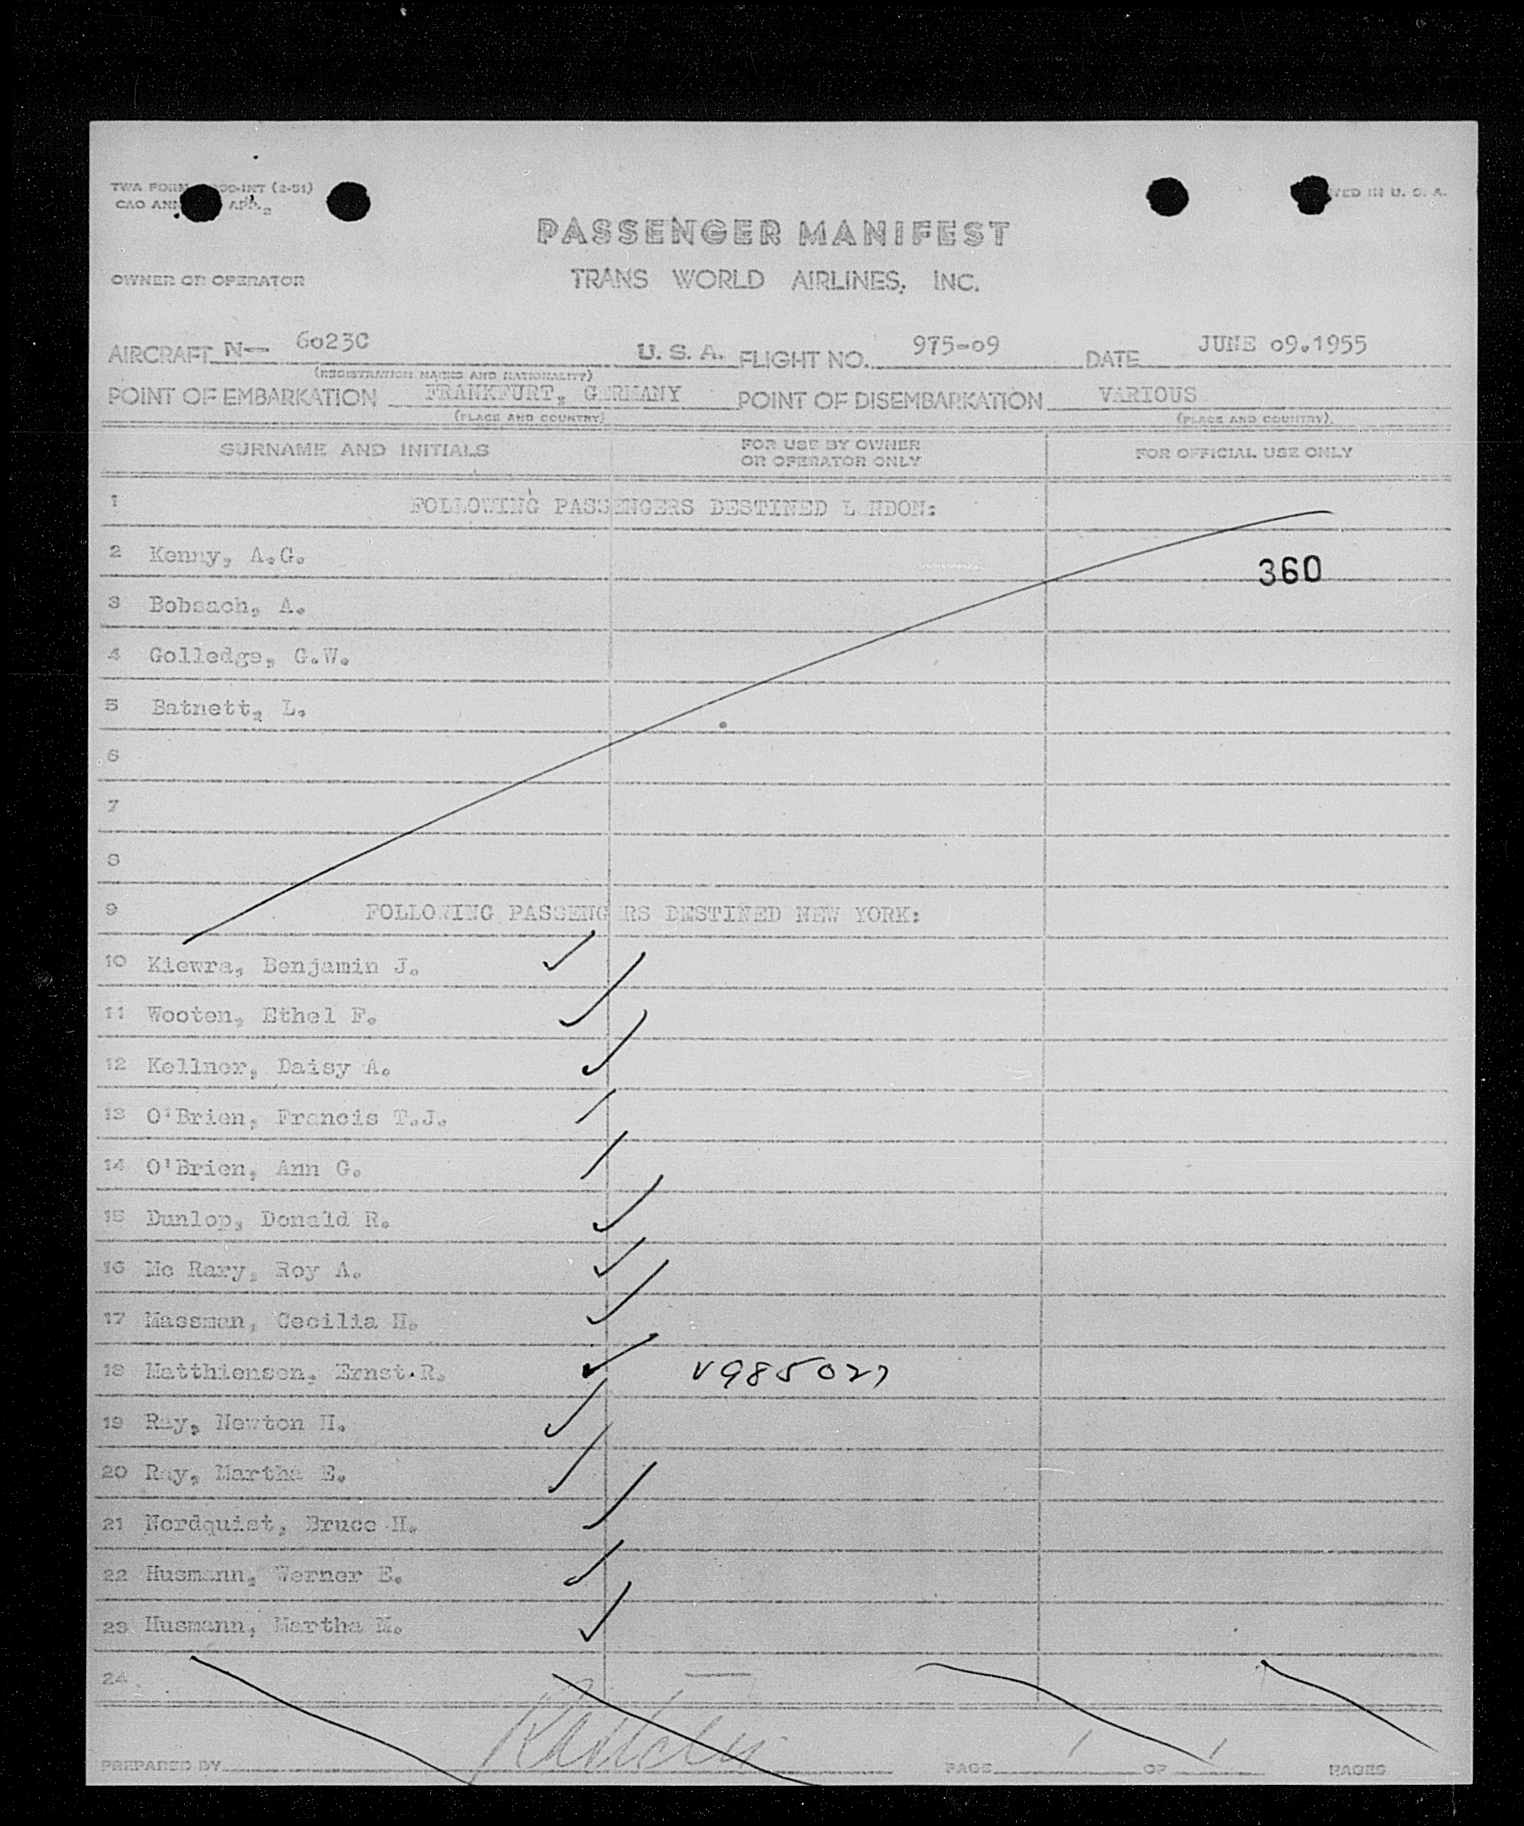 TWA FORM (2-51)
CAO
IN U. S. A.
PASSENGER MANIFEST
OWNER OR OPERATOR
TRANS WORLD AIRLINES, INC.
AIRCRAFT N— 6023C U. S. A. FLIGHT NO. 975-09 DATE JUNE 09.1955
(REGISTRATION MARKS AND NATIONALITY)
POINT OF EMBARKATION FRANKFURT, GERMANY POINT OF DISEMBARKATION VARIOUS
(PLACE AND COUNTRY) (PLACE AND COUNTRY)
SURNAME AND INITIALS FOR USE BY OWNER OR OPERATOR ONLY FOR OFFICIAL USE ONLY
1 FOLLOWING PASSENGERS DESTINED L NDON:
2 Kenny, A.G. 360
3 Bobsach, A.
4 Golledge, G.W.
5 Batnett, L.
6
7
8
9 FOLLOWING PASSENGERS DESTINED NEW YORK:
10 Kiewra, Benjamin J.
11 Wooten, Ethel F.
12 Kellner, Daisy A.
13 O'Brien, Francis T.J.
14 O'Brien, Ann G.
15 Dunlop, Donald R.
16 Mc Rary, Roy A.
17 Massman, Cecilia H.
18 Matthiensen, Ernst.R. V985027
19 Ray, Newton H.
20 Ray, Martha E.
21 Nordquist, Bruce H.
22 Husmann, Werner E.
23 Husmann, Martha M.
24
PREPARED BY PAGE 1 OF 1 PAGES